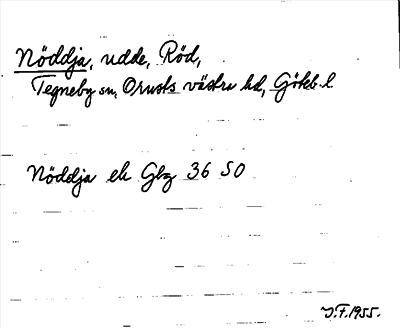 Nöddja, udde, Röd,
Tegneby sn, Orusts västra hd, Göteb. l.
Nöddja ek Gbg 36 SO
J.F. 1955.